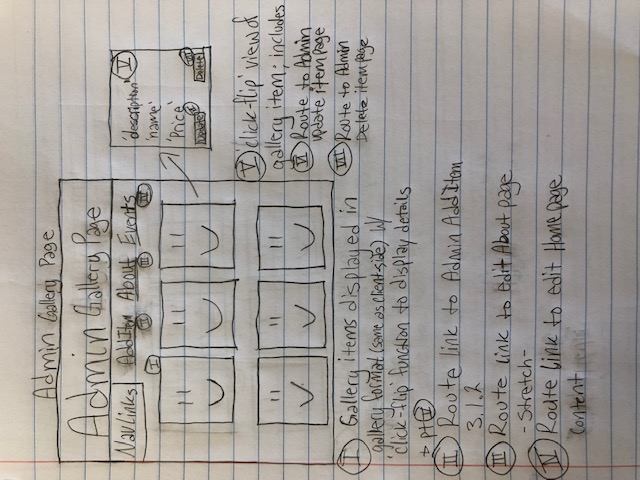 Admin Gallery Page
Admin Gallery Page
Nav Links Add Item About Events
I II III IV
'description' V
'name'
'Price'
Update VI Delete VII
V 'click-flip' view of
gallery item; includes
VI Route to Admin
update item page
VII Route to Admin
Delete item page
I Gallery items displayed in
gallery format (same as client side) w/
'click-flip' function to display details
→ pt V
II Route link to Admin Add Item
3.1.2
III Route link to edit About page
- Stretch -
IV Route link to edit Home page
content